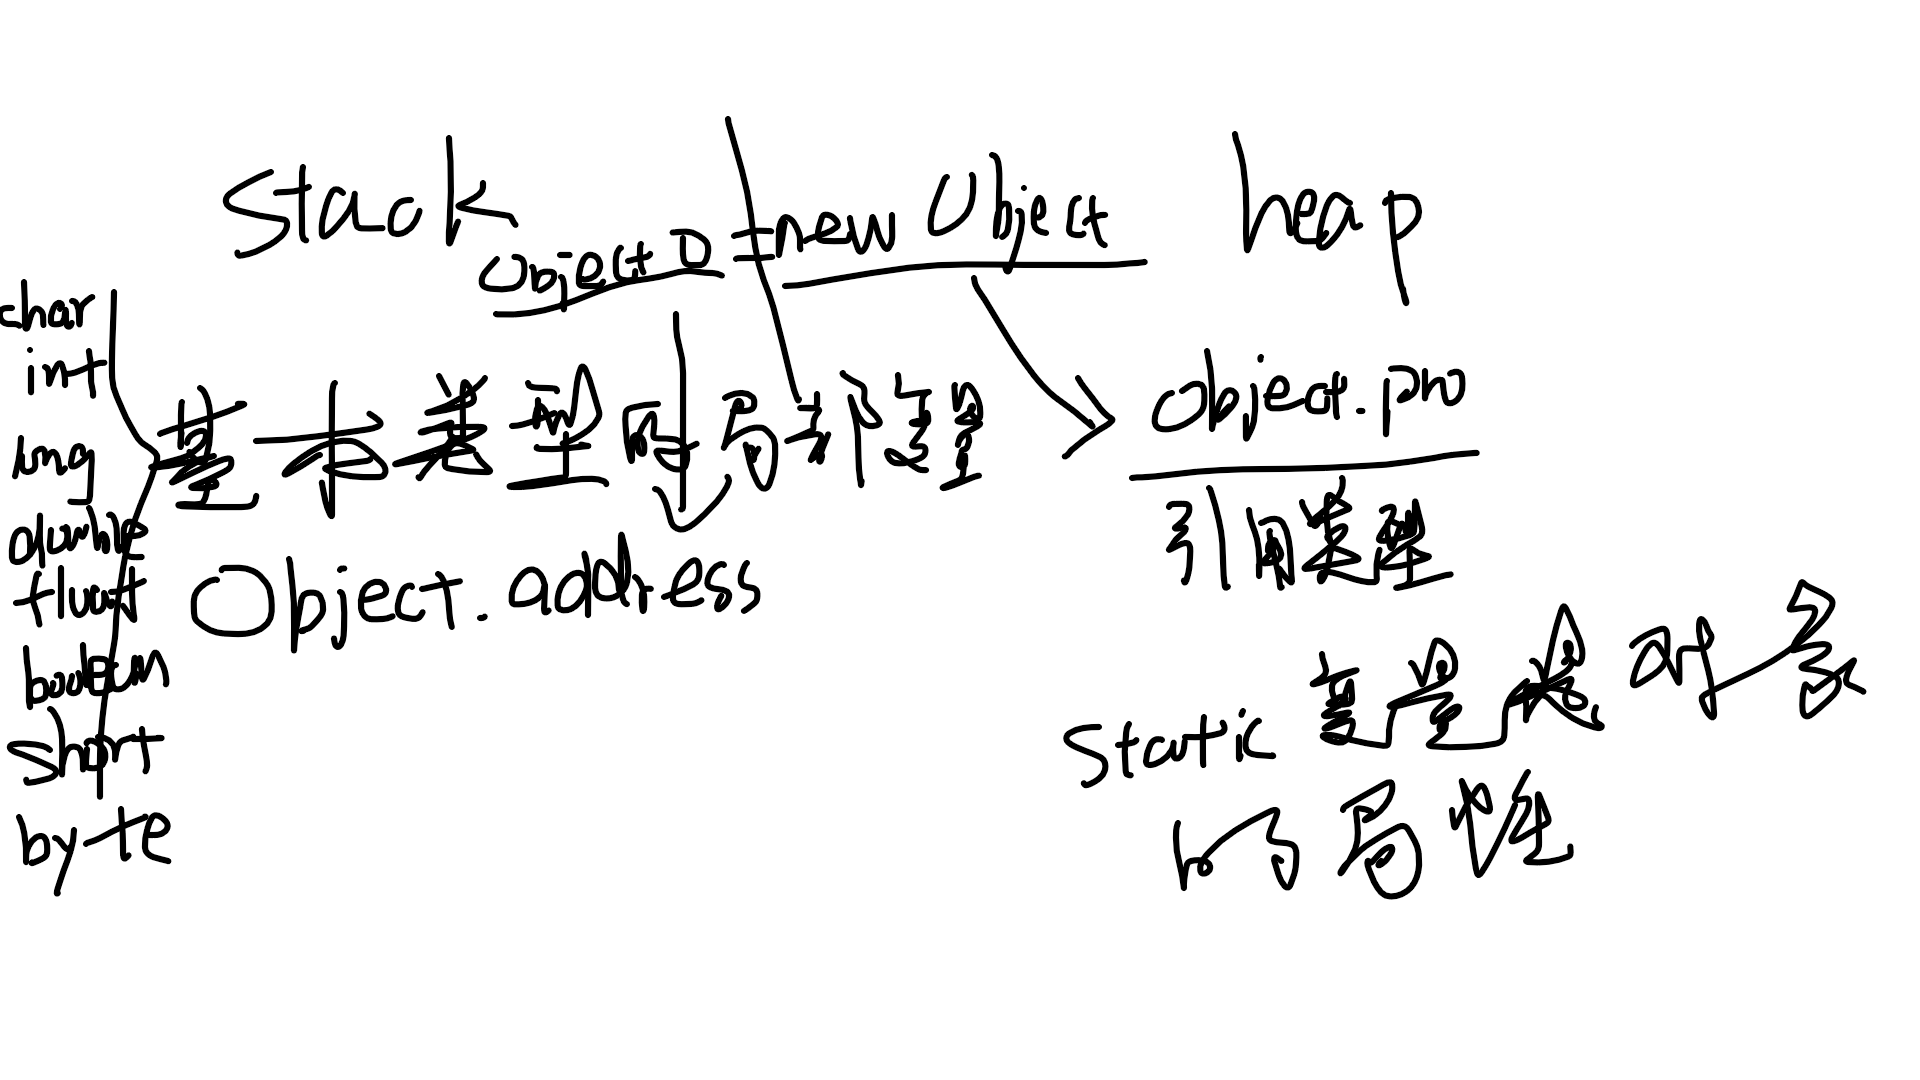 stack
Object O = new Object
heap
char
int
long
double
float
boolean
short
byte
基本类型的局部变量
Object.address
Object.pro
引用类型
static 变量是对象
的属性